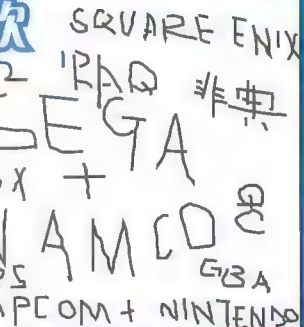 SQUARE ENIX
IRAQ 非典
SEGA
X +
NAMCO
GBA
APCOM + NINTENDO